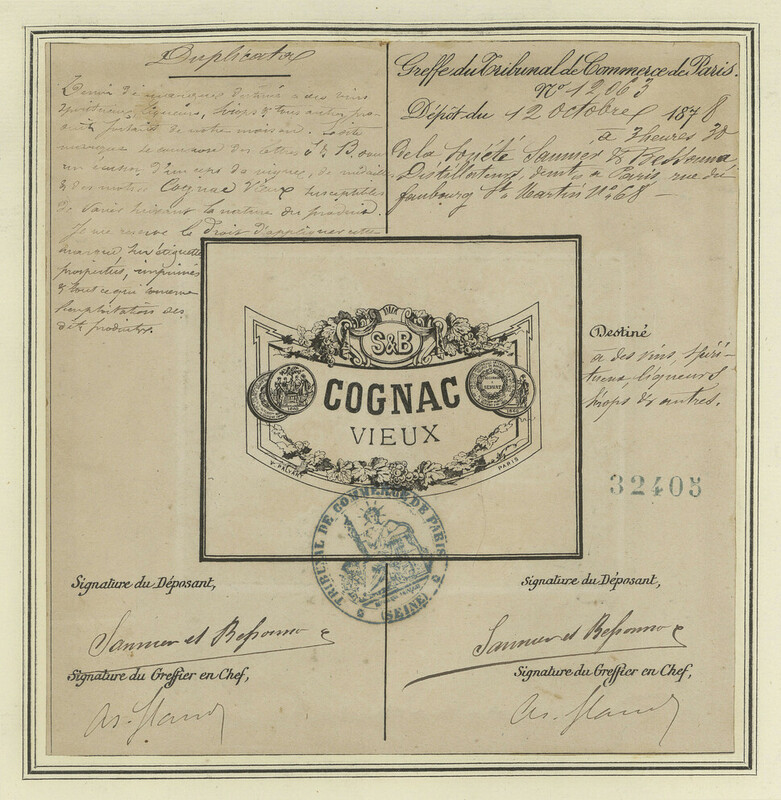 Duplicator
vins
spiritueux, liqueurs, sirops & tous autres pro-
de notre maison.
marque se compose des lettres S & B. sous
un écusson d'un ceps de vignes, de médailles
& des mots: Cognac Vieux susceptibles
de varier suivant la nature du produit.
Je me réserve le droit d'appliquer cette
marque, sur étiquettes
prospectus, imprimés
& tout ce qui concerne
l'exploitation des
dits produits.
Greffe du Tribunal de Commerce de Paris.
N° 12,063
Dépôt du 12 octobre 1878
à 3 heures 30
de la Société Saunier & Bessonno
Distillateurs, demt à Paris, rue du
faubourg St Martin N° 68
S&B
COGNAC
VIEUX
V. PALYART
PARIS
Destiné
à des vins, spiri-
tueux liqueurs
sirops & autres.
32405
TRIBUNAL DE COMMERCE DE PARIS
(SEINE)
Signature du Déposant,
Saunier et Bessonno
Signature du Greffier en Chef,
Signature du Déposant,
Saunier et Bessonno
Signature du Greffier en Chef,